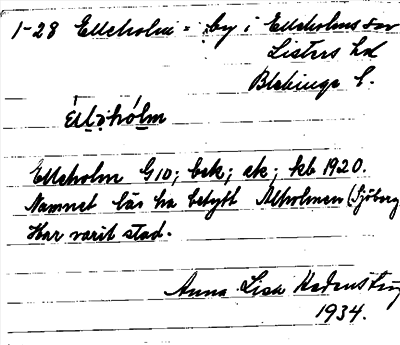 1-28 Elleholm = by i Elleholms sn
Listers hd
Blekinge l.
Elleholm G10; bek; ek; kb 1920.
Namnet lär ha betytt Alholmen (Sjöborg
Har varit stad.
Anna Lisa
1934.